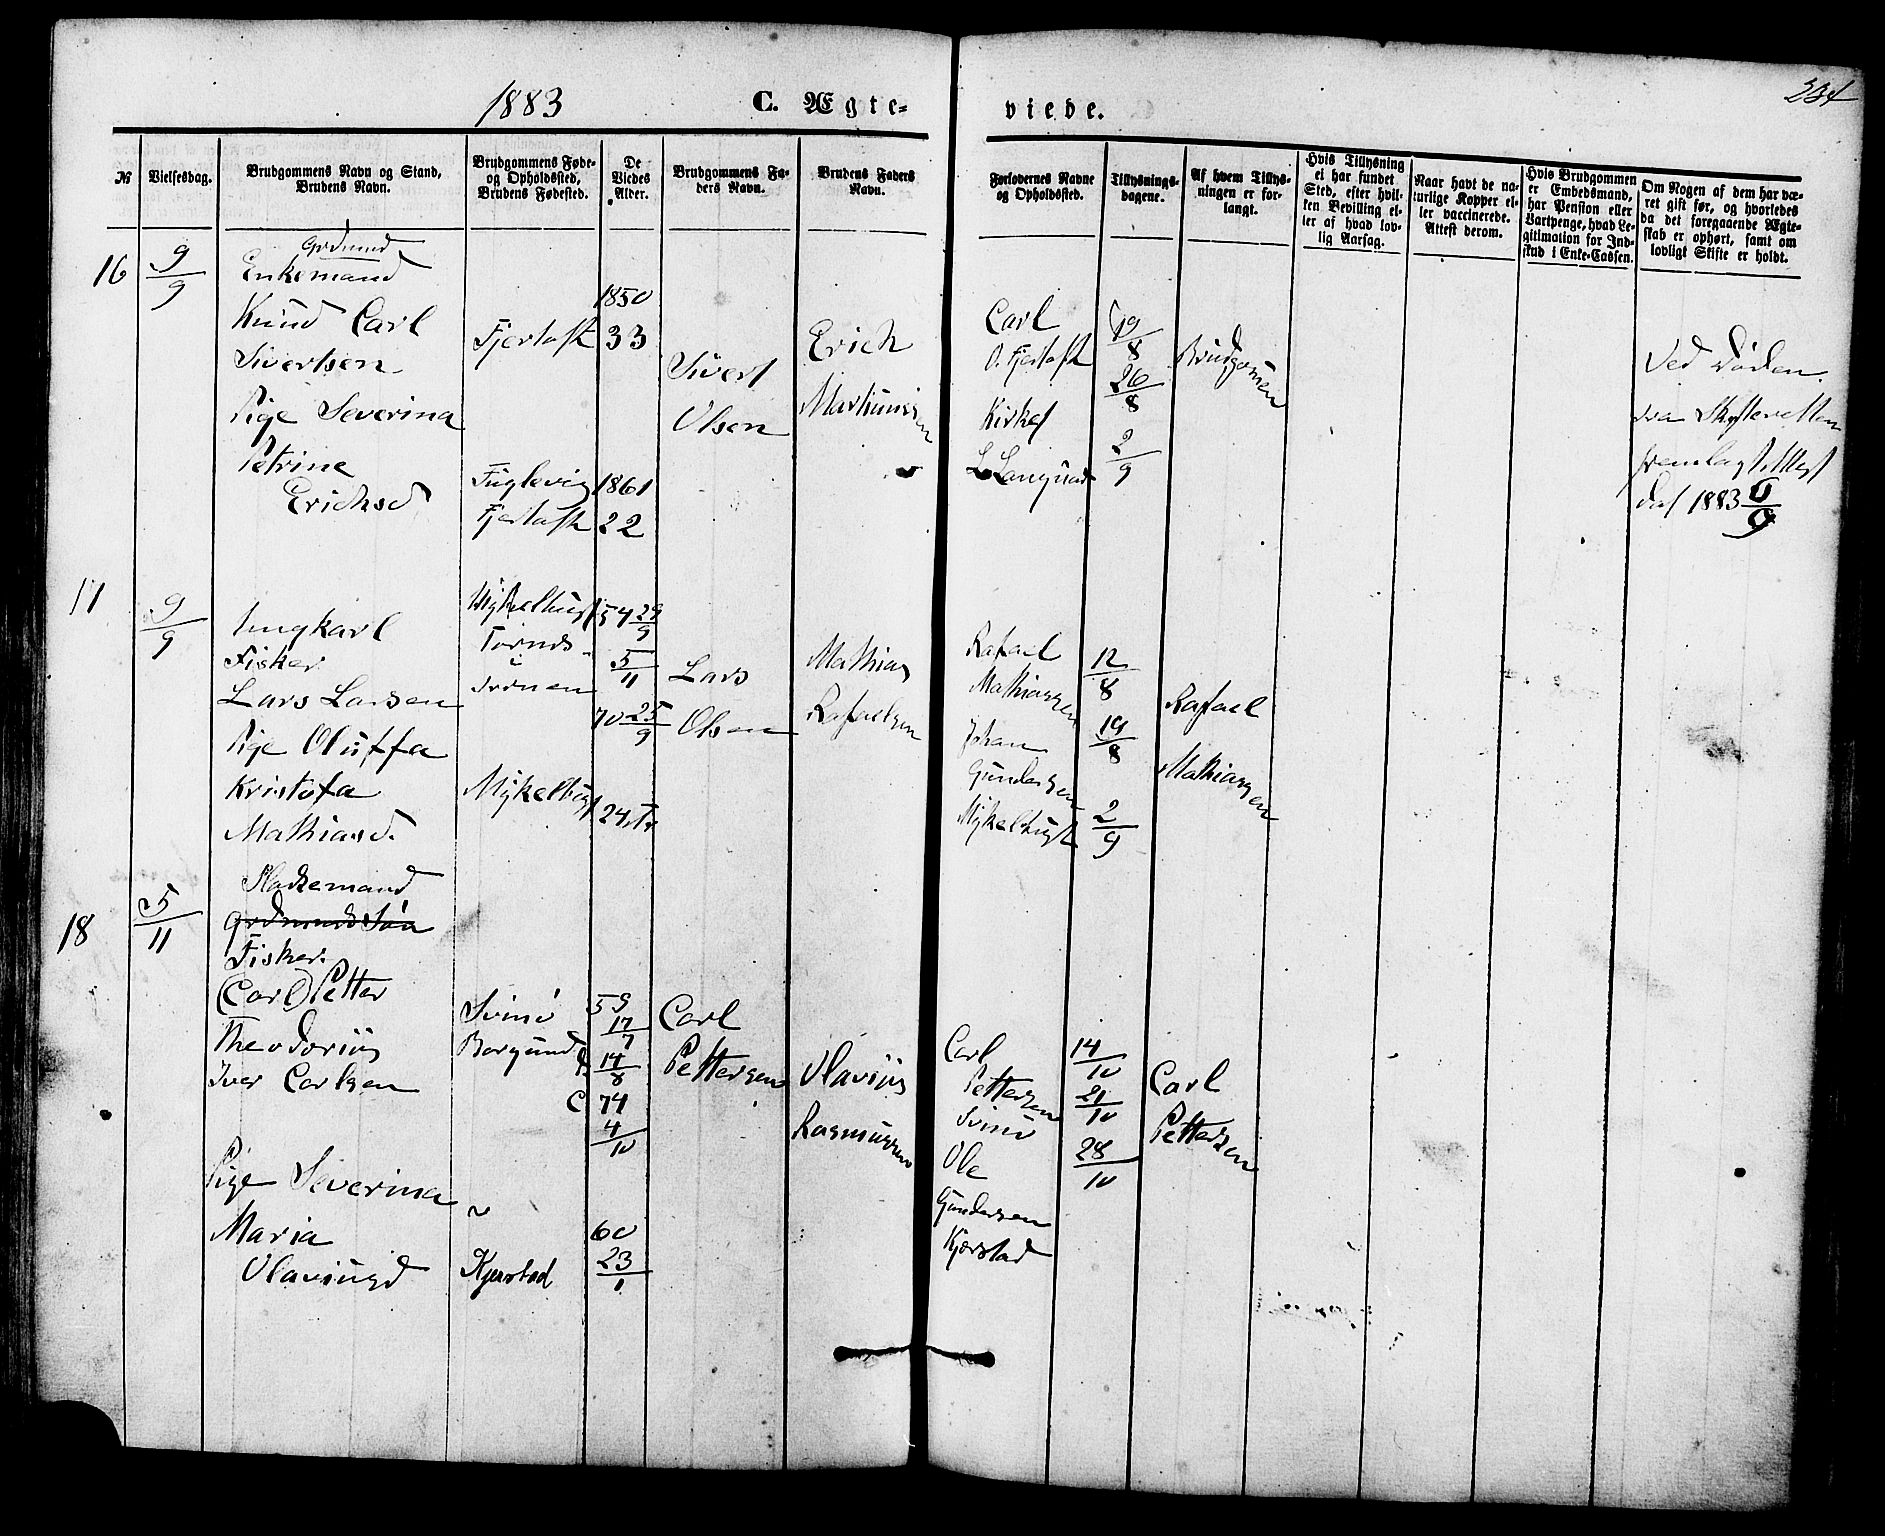 1883
C. Ægte-
viede.
234
№
Vielsesdag.
Brudgommens Navn og Stand,
Brudens Navn.
Brudgommens Føde-
og Opholdssted,
Brudens Fødested.
De
Viedes
Alder.
Brudgommens Fa-
ders Navn.
Brudens Faders
Navn.
Forlovernes Navne
og Opholdssted.
Tillysnings-
dagene.
Af hvem Tillys-
ningen er for-
langt.
Hvis Tillysning
ei har fundet
Sted, efter hvil-
ken Bevilling el-
ler af hvad lov-
lig Aarsag.
Naar havt de na-
turlige Kopper el-
ler vaccinerede.
Attest derom.
Hvis Brudgommen
er Embedsmand,
har Pension eller
Vartpenge, hvad Le-
gitimation for Ind-
skud i Enke-Cassen.
Om Nogen af dem har væ-
ret gift før, og hvorledes
da det foregaaende Ægte-
skab er ophørt, samt om
lovligt Skifte er holdt.
16
9/9
Enkemand
Knud Carl
Sivertsen
Pige Severina
Petrine
Erichsd
Fjertoft
Fuglevig
Fjertoft
1850
33
1861
22
Sivert
Olsen
Erich
Carl
O. Fjertoft
19/8
26/8
2/9
Brudgomen
Ved Døden.
fra Skifteretten
fremlagt Attest
dat 1883 6/9
17
9/9
Ungkarl
Fisker
Lars Larsen
Pige Oluffa
Kristofa
Mathiasd.
Mykelbust
54 29/9
5/11
70 25/9
24
Lars
Olsen
Mathias
Rafaelsen
Rafael
Mathiassen
Johan
Gundersen
Mykelbust
12/8
19/8
2/9
Rafael
Mathiassen
18
5/11
Pladsemand
Fisker.
(Carl) Petter
Theodorius
Iver Carlsen
Pige Severina
Maria
Olaviusd
Svinø
Borgund
Kjerstad
59
17/7
14/8
C 74
4/10
60
23/1
Carl
Pettersen
Olavius
Rasmussen
Carl
Pettersen
Svinø
Ole
Gundersen
Kjerstad
14/10
21/10
28/10
Carl
Pettersen